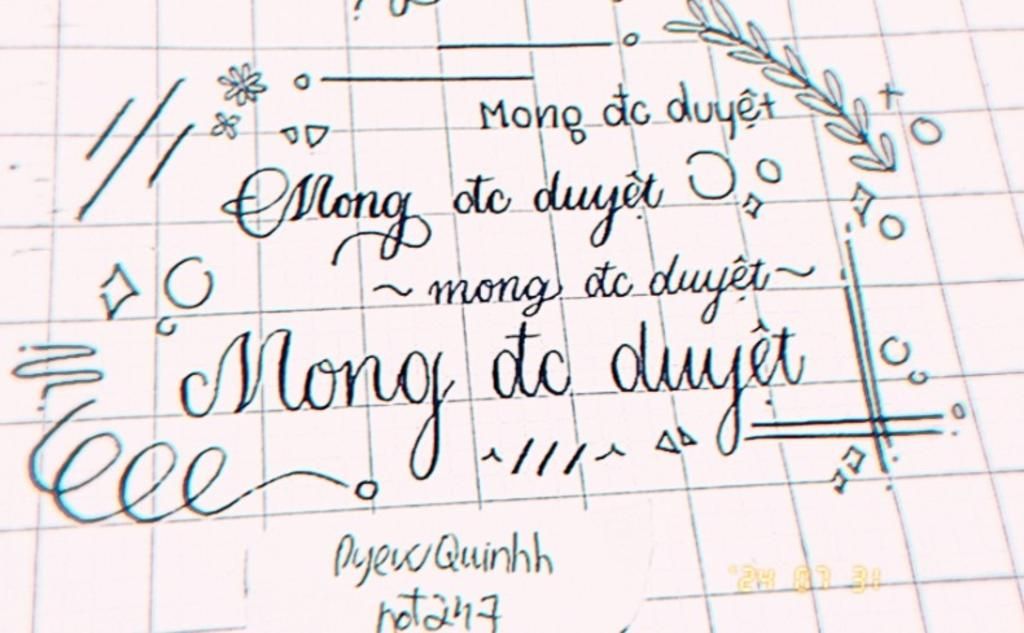 Mong đc duyệt
Mong đc duyệt
~ mong đc duyệt ~
Mong đc duyệt
not247
'24 07 31